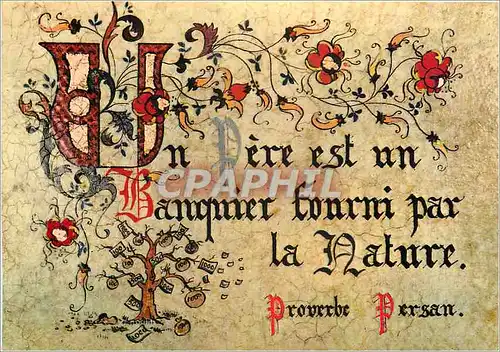 Un Père est un
Banquier fourni par
la Nature.
Proverbe Persan.
CPAPHIL